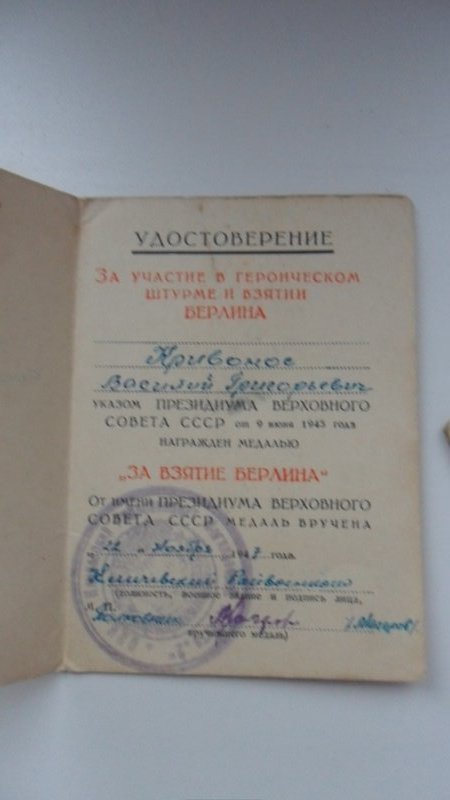 УДОСТОВЕРЕНИЕ
ЗА УЧАСТИЕ В ГЕРОИЧЕСКОМ
ШТУРМЕ И ВЗЯТИИ
БЕРЛИНА
Кривонос
Василий Григорьевич
УКАЗОМ ПРЕЗИДИУМА ВЕРХОВНОГО
СОВЕТА СССР от 9 июня 1945 года
НАГРАЖДЕН МЕДАЛЬЮ
„ЗА ВЗЯТИЕ БЕРЛИНА“
ОТ ИМЕНИ ПРЕЗИДИУМА ВЕРХОВНОГО
СОВЕТА СССР МЕДАЛЬ ВРУЧЕНА
„22“ Ноябрь 1947 года.
Райвоенком
(должность, военное звание и подпись лица,
М. П.
вручившего медаль)